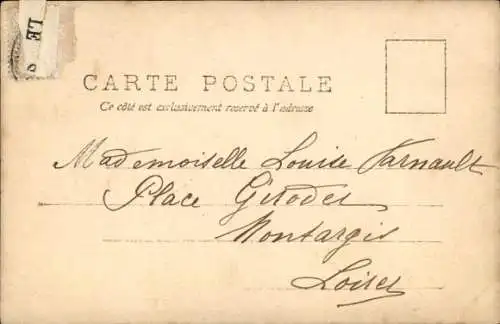 LE 9
CARTE POSTALE
Ce côté est exclusivement reservé à l'adresse
Mademoiselle Louise Varnault
Place Girodet
Montargis
Loiret